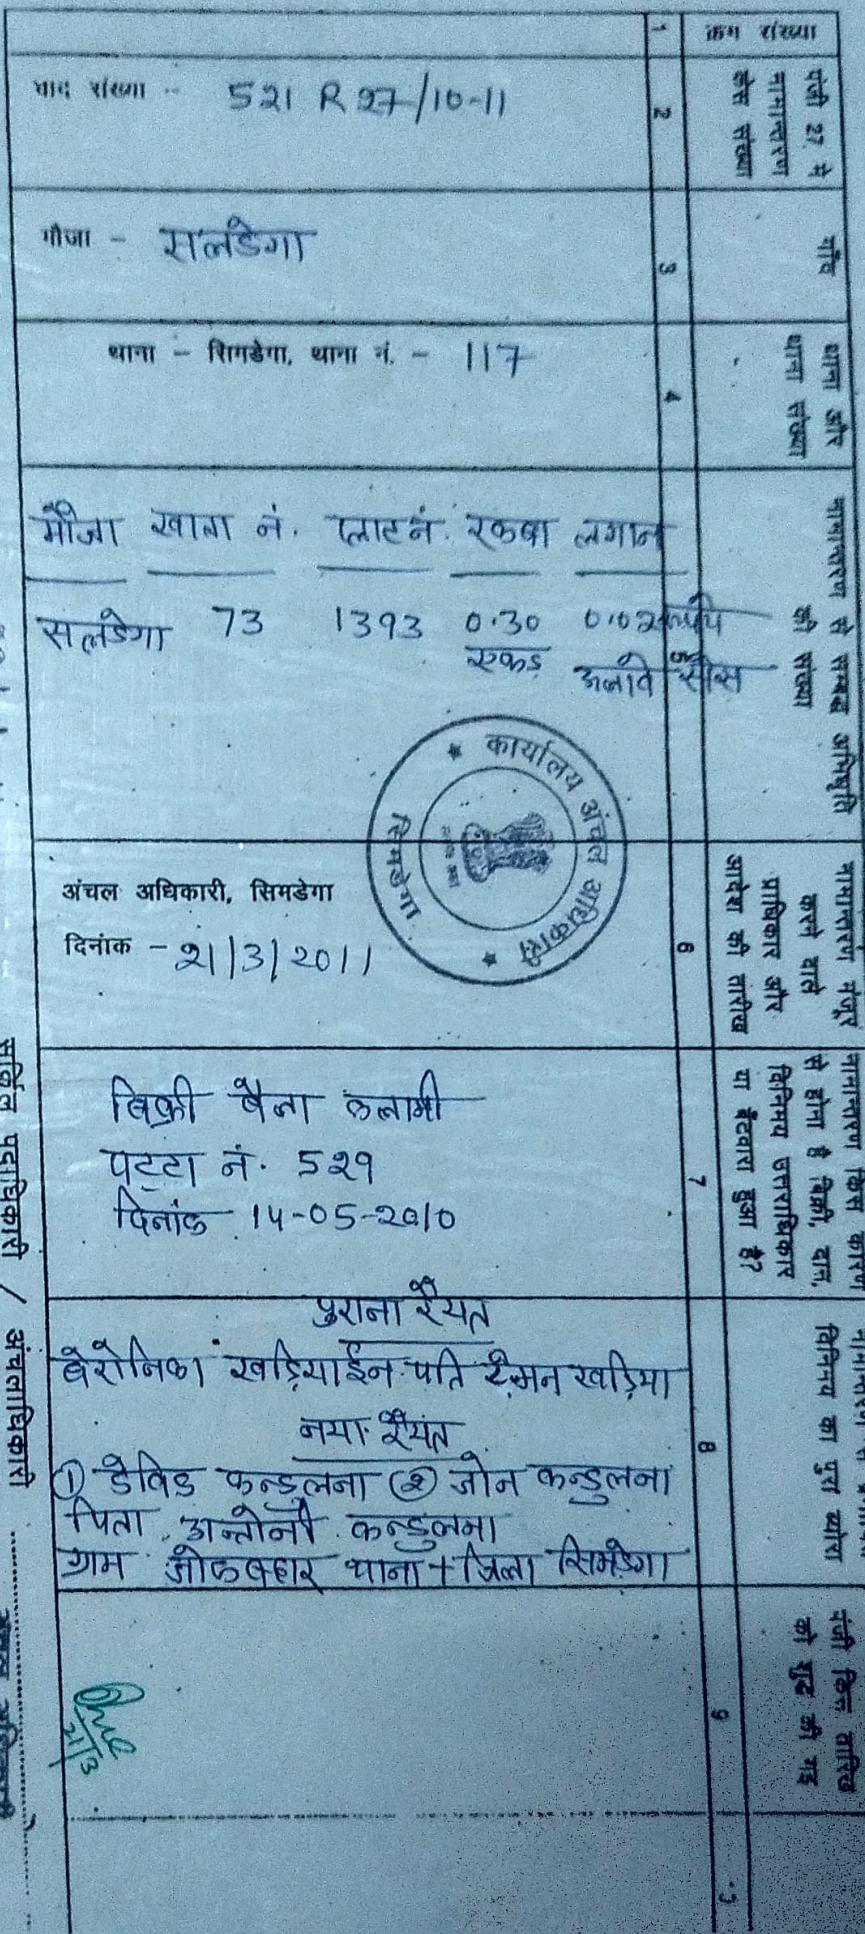 क्रम संख्या
1
पंजी 27 मे
नामान्तरण
केस संख्या
2
वाद संख्या - 521 R 27/10-11
गाँव
3
मौजा - सलडेगा
थाना और
थाना संख्या
4
थाना - सिमडेगा, थाना नं. - 117
नामान्तरण से सम्बद्ध अभिधृति
की संख्या
5
मौजा खाता नं. प्लाट नं. रकबा लगान
सलडेगा 73 1393 0.30 0.02 रूपये
एकड़ अलावे सेस
कार्यालय अंचल अधिकारी
सिमडेगा
नामान्तरण मंजूर
करने वाले
प्राधिकार और
आदेश की तारीख
6
अंचल अधिकारी, सिमडेगा
दिनांक - 21/3/2011
नामान्तरण किस कारण
से होना है बिक्री, दान,
विनिमय उत्तराधिकार
या बँटवारा हुआ है?
7
बिक्री
पट्टा नं. 529
दिनांक 14-05-2010
विनिमय का पुरा ब्योरा
8
पुराना रैयत
बेरोनिका खड़ियाईन पति खड़िया
नया रैयत
① डेविड कन्डुलना ② जोन कन्डुलना
पिता अन्तोनी कन्डुलना
ग्राम थाना + जिला सिमडेगा
पंजी किस तारिख
को शुद्ध की गइ
9
21/3
सर्किल पदाधिकारी / अंचलाधिकारी